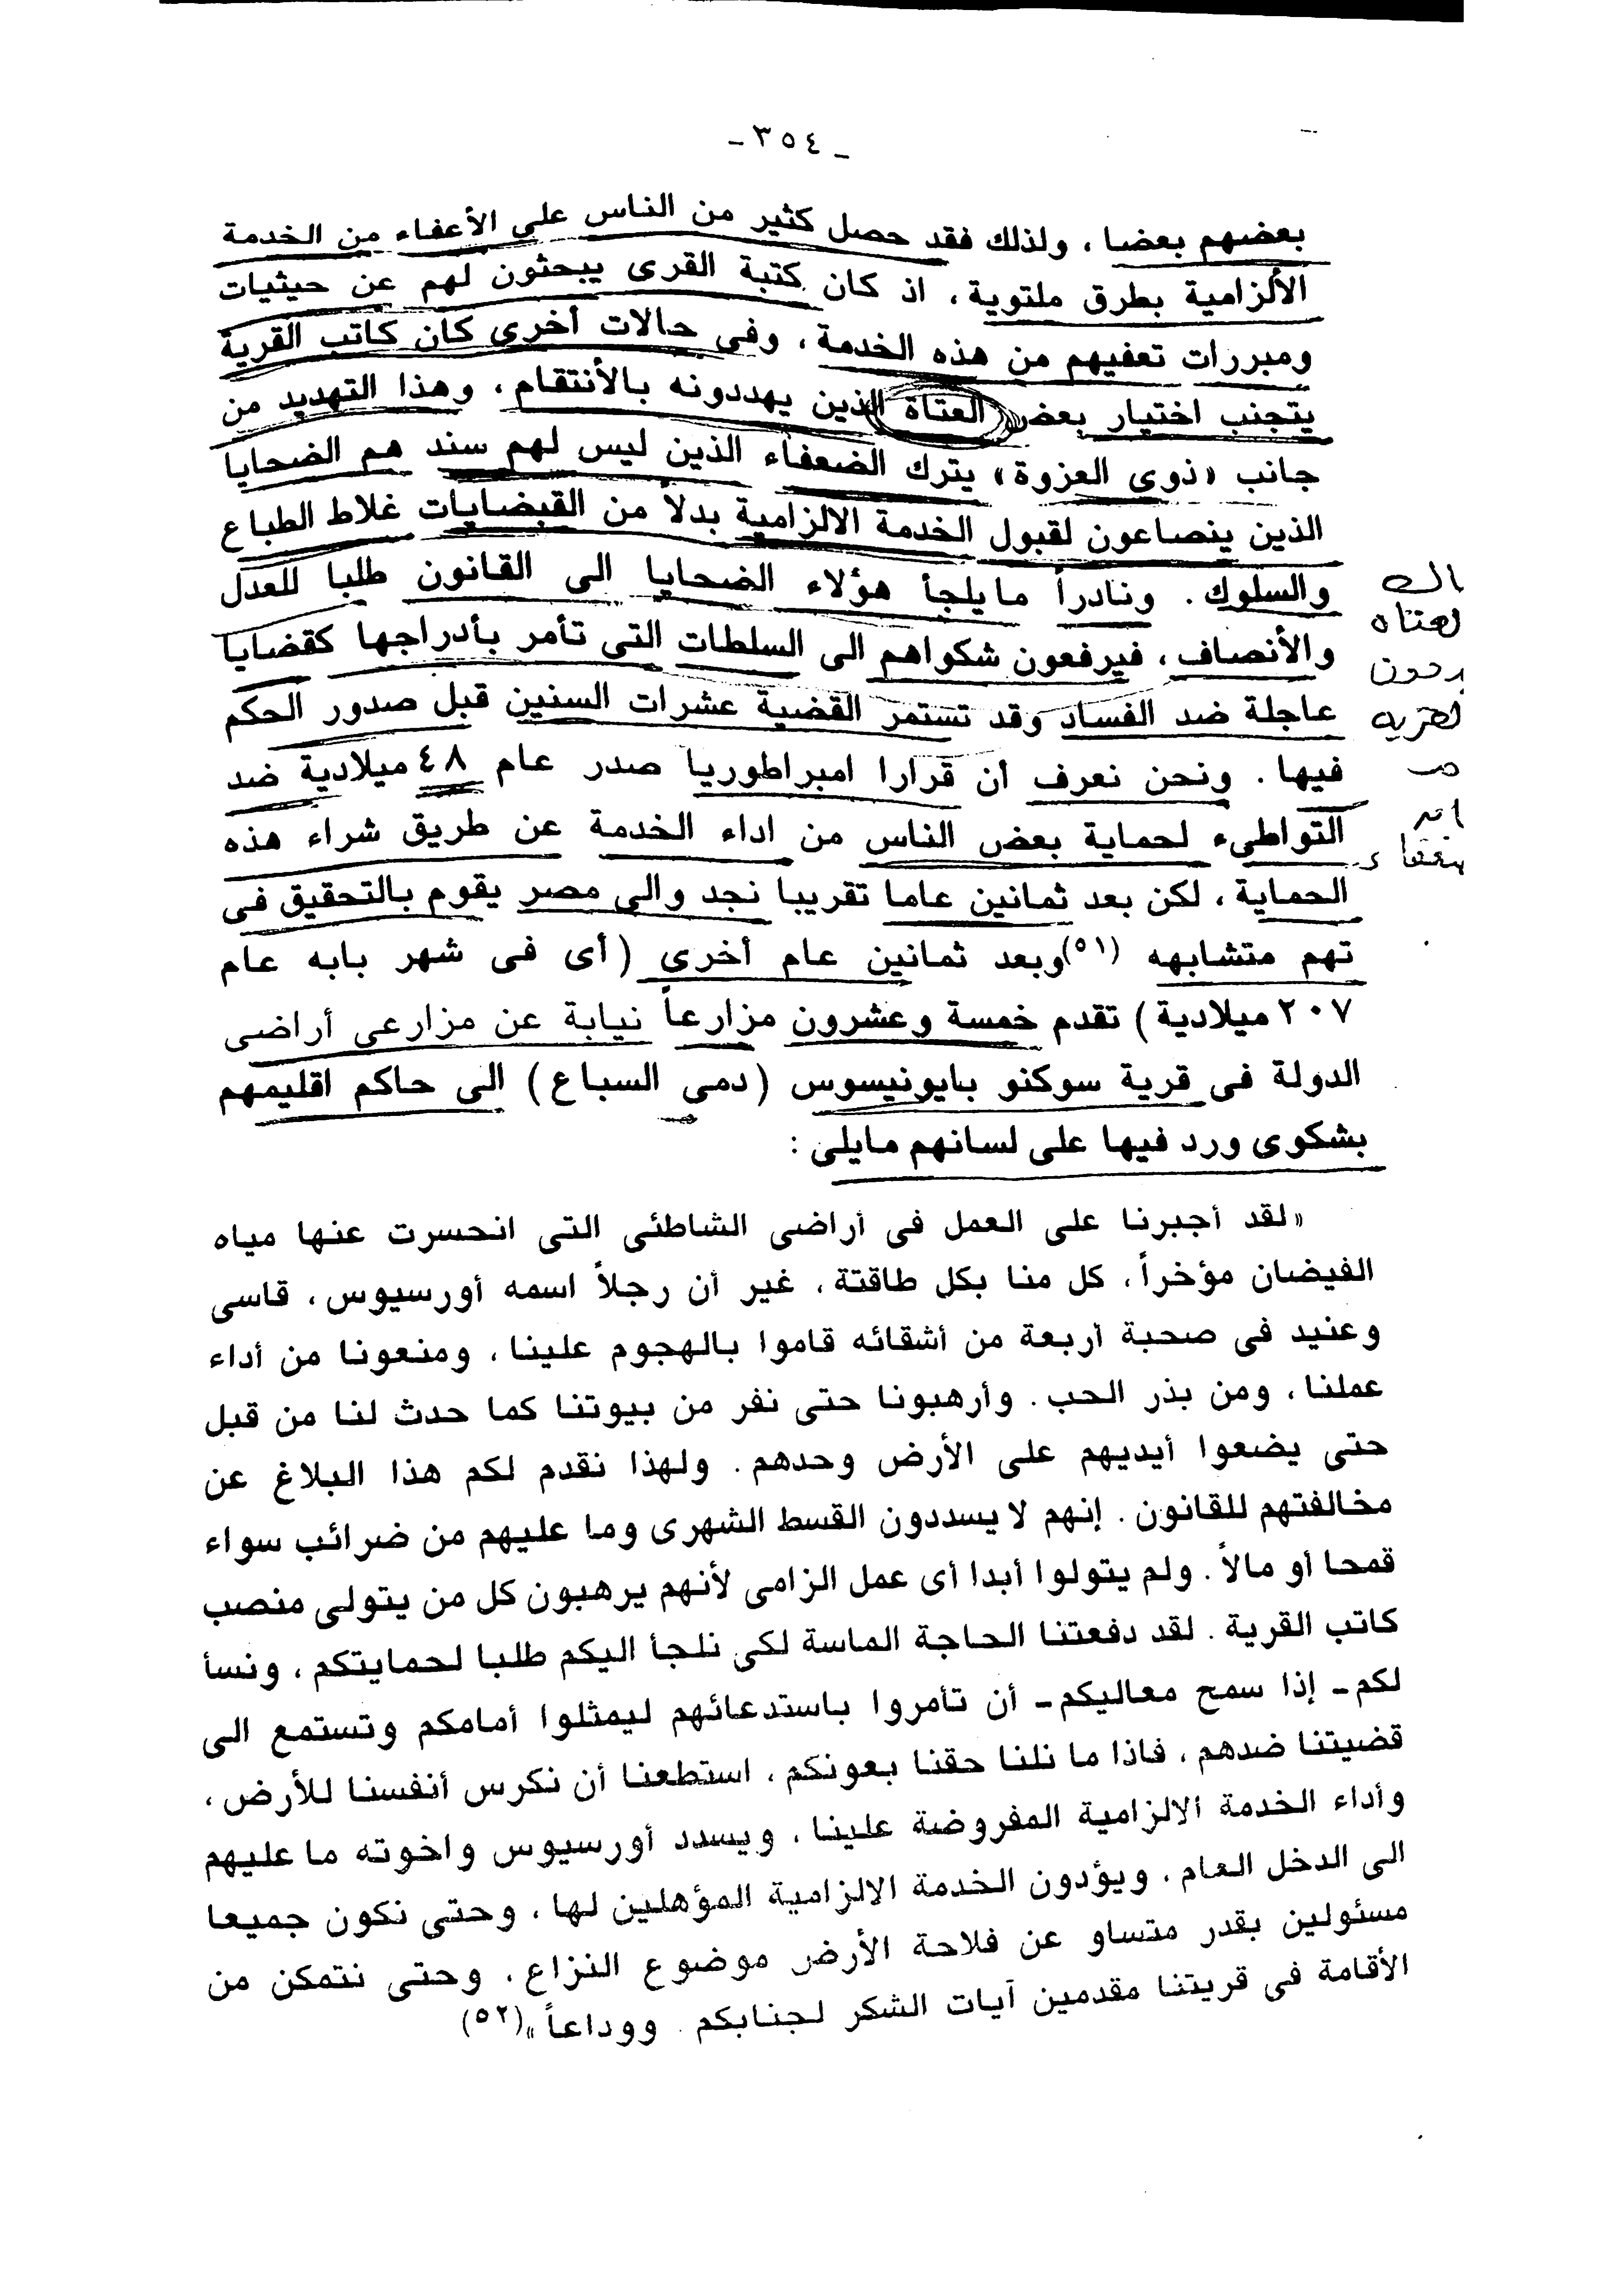 ـ ٣٥٤ ـ
بعضهم بعضا ، ولذلك فقد حصل كثير من الناس على الأعفاء من الخدمة
الألزامية بطرق ملتوية ، اذ كان كتبة القرى يبحثون لهم عن حيثيات
ومبررات تعفيهم من هذه الخدمة ، وفى حالات أخرى كان كاتب القرية
يتجنب اختيار بعض العتاة الذين يهددونه بالأنتقام ، وهذا التهديد من
جانب «ذوى العزوة» يترك الضعفاء الذين ليس لهم سند هم الضحايا
الذين ينصاعون لقبول الخدمة الالزامية بدلاً من القبضايات غلاط الطباع
والسلوك . ونادراً مايلجأ هؤلاء الضحايا الى القانون طلبا للعدل
والأنصاف ، فيرفعون شكواهم الى السلطات التى تأمر بأدراجها كقضايا
عاجلة ضد الفساد وقد تستمر القضية عشرات السنين قبل صدور الحكم
فيها . ونحن نعرف أن قرارا امبراطوريا صدر عام ٤٨ ميلادية ضد
التواطىء لحماية بعض الناس من اداء الخدمة عن طريق شراء هذه
الحماية ، لكن بعد ثمانين عاما تقريبا نجد والى مصر يقوم بالتحقيق فى
تهم متشابهه (٥١) وبعد ثمانين عام أخرى (أى فى شهر بابه عام
٢٠٧ ميلادية) تقدم خمسة وعشرون مزارعاً نيابة عن مزارعى أراضى
الدولة فى قرية سوكنو بايونيسوس (دمى السباع) الى حاكم اقليمهم
بشكوى ورد فيها على لسانهم مايلى :
«لقد أجبرنا على العمل فى أراضى الشاطئى التى انحسرت عنها مياه
الفيضان مؤخراً ، كل منا بكل طاقتة ، غير أن رجلاً اسمه أورسيوس ، قاسى
وعنيد فى صحبة أربعة من أشقائه قاموا بالهجوم علينا ، ومنعونا من أداء
عملنا ، ومن بذر الحب . وأرهبونا حتى نفر من بيوتنا كما حدث لنا من قبل
حتى يضعوا أيديهم على الأرض وحدهم . ولهذا نقدم لكم هذا البلاغ عن
مخالفتهم للقانون . إنهم لا يسددون القسط الشهرى وما عليهم من ضرائب سواء
قمحا أو مالاً . ولم يتولوا أبدا أى عمل الزامى لأنهم يرهبون كل من يتولى منصب
كاتب القرية . لقد دفعتنا الحاجة الماسة لكى نلجأ اليكم طلبا لحمايتكم ، ونسأ
لكم ـ إذا سمح معاليكم ـ أن تأمروا باستدعائهم ليمثلوا أمامكم وتستمع الى
قضيتنا ضدهم ، فاذا ما نلنا حقنا بعونكم ، استطعنا أن نكرس أنفسنا للأرض ،
وأداء الخدمة الالزامية المفروضة علينا ، ويسدد أورسيوس واخوته ما عليهم
الى الدخل العام ، ويؤدون الخدمة الالزامية المؤهلين لها ، وحتى نكون جميعا
مسئولين بقدر متساو عن فلاحة الأرض موضوع النزاع ، وحتى نتمكن من
الأقامة فى قريتنا مقدمين آيات الشكر لجنابكم . ووداعاً» (٥٢)